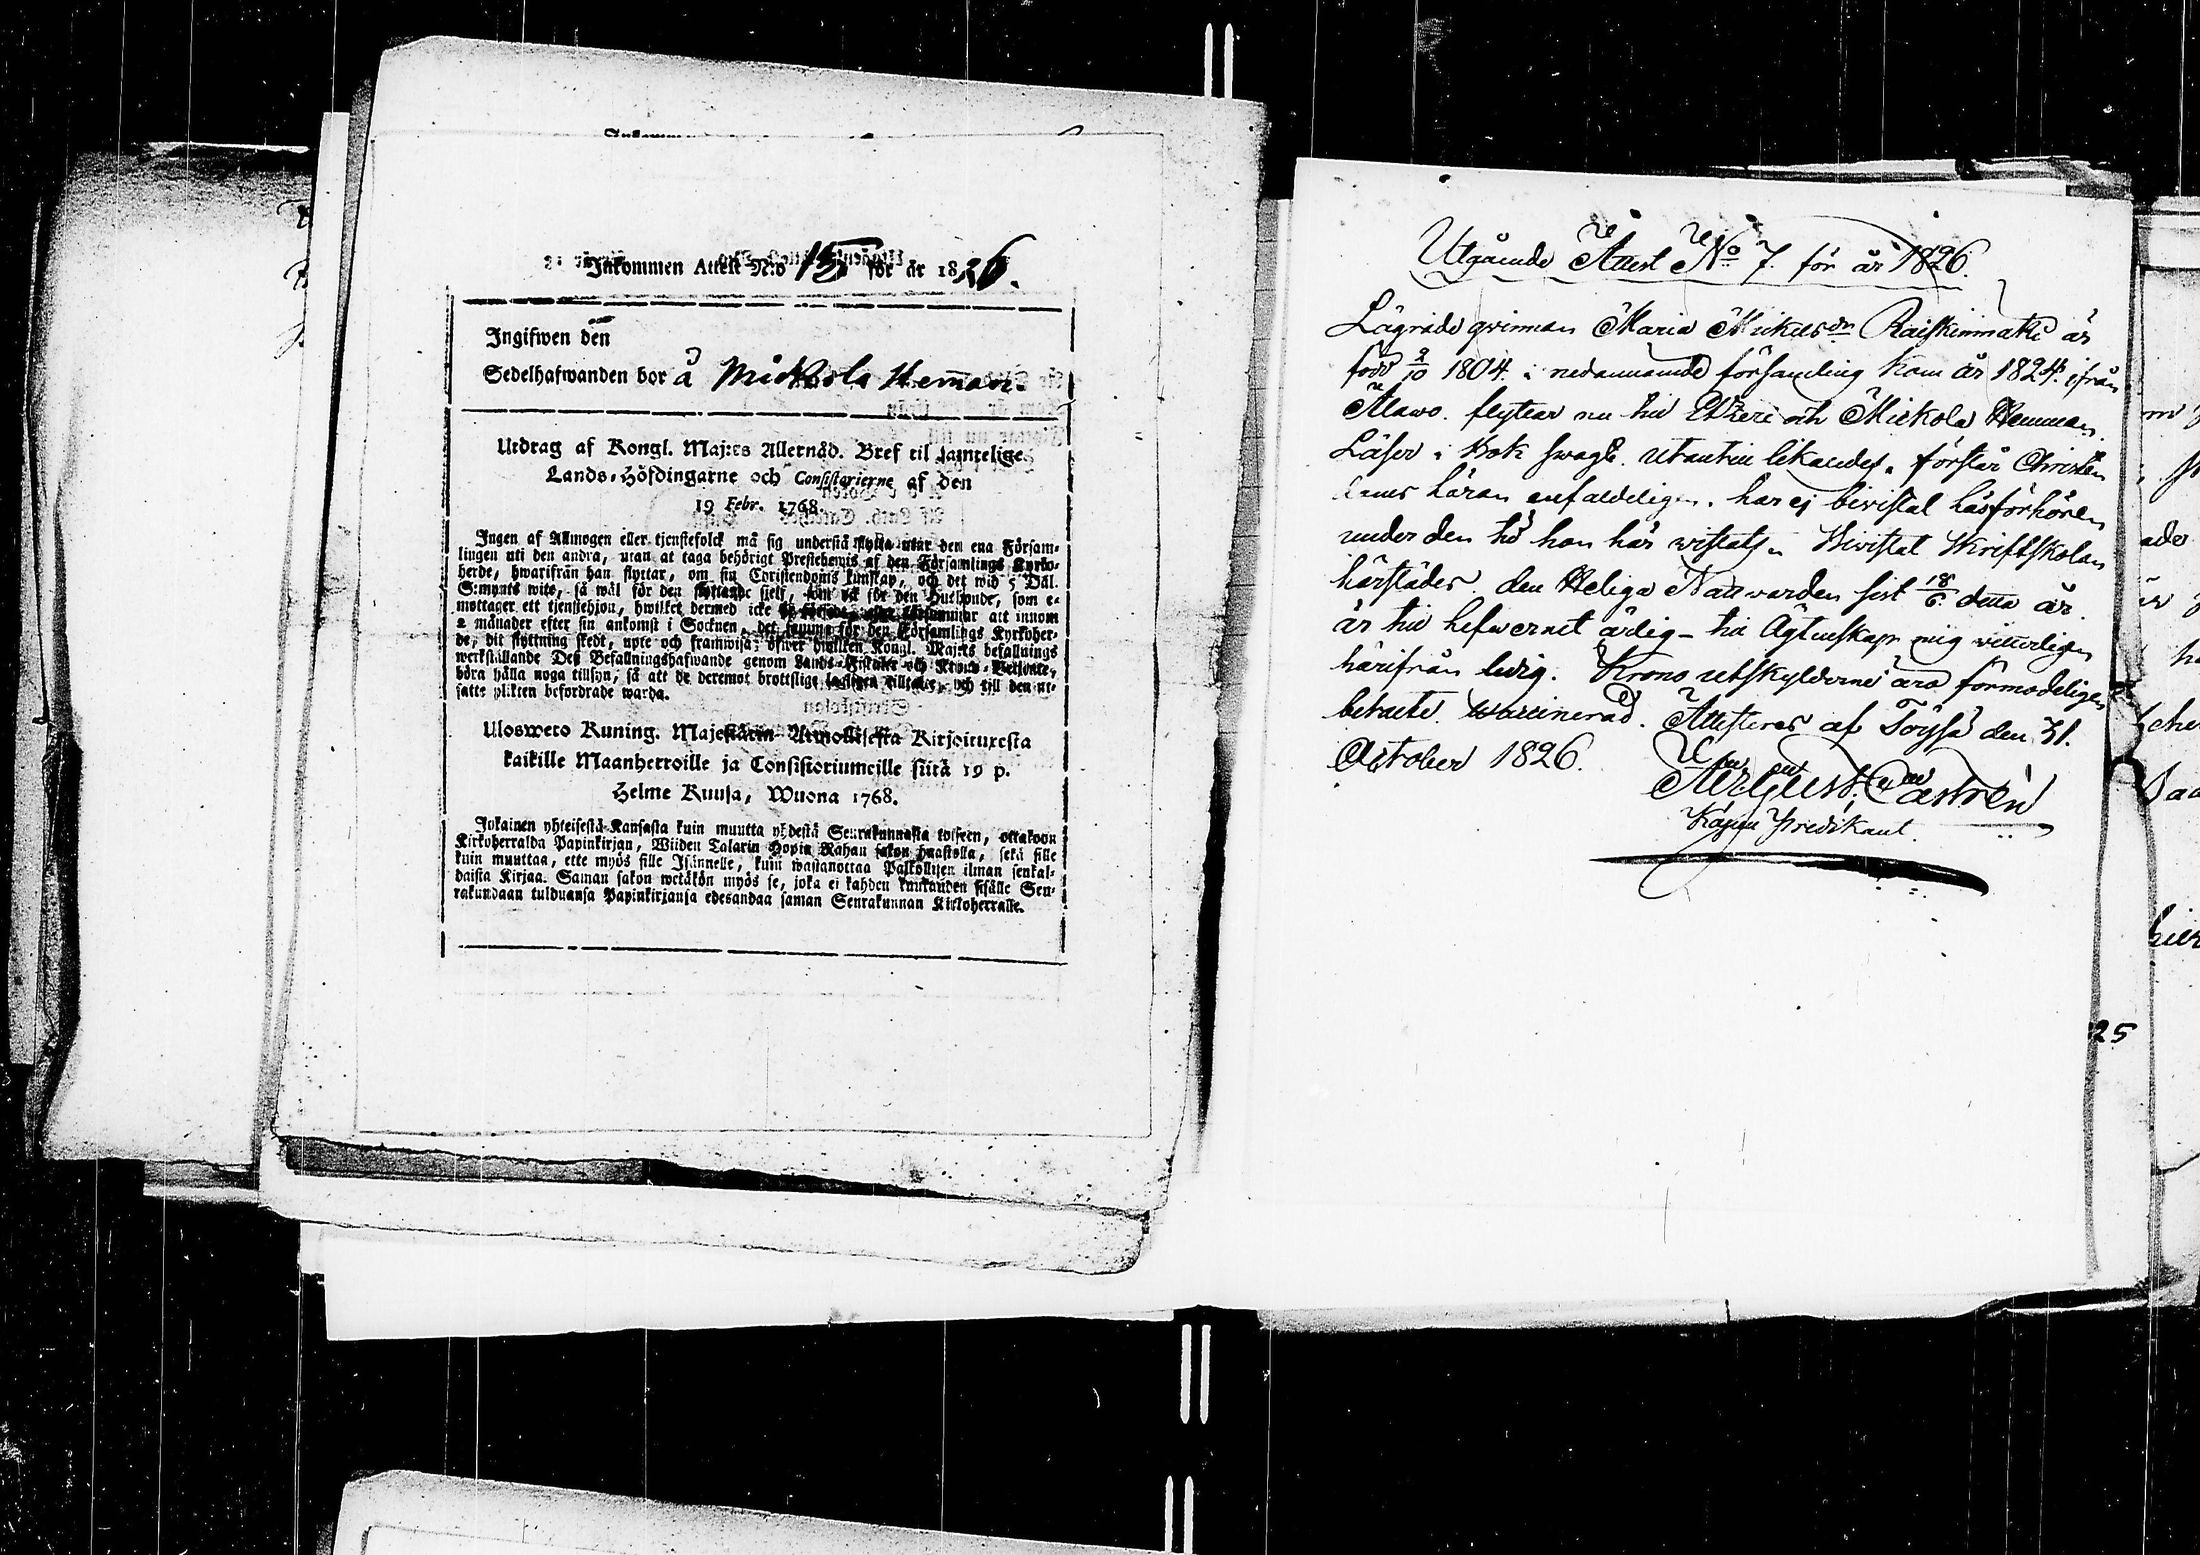 Inkommen Attest N:o 15 för år 1826.
Ingifwen den
Sedelhafwanden bor å Mickola Heman
Utdrag af Kongl. Maj:ts Allernåd. Bref til samtelige
Lands-Höfdingarne och Consistorierne af den
19 Febr. 1768.
Ingen af Allmogen eller tjenstefolck må sig understå flytta utur den ena Försam-
lingen uti den andra, utan at taga behörigt Prestebewis af den Församlings Kyrko-
herde, hwarifrån han flyttar, om sin Christendoms kunskap, och det wid 5 Dal.
S:mynts wite, så wäl för den flyttande sielf, som ock för den Husbonde, som e-
mottager ett tjenstehjon, hwilket dermed icke är försedt, eller försummar att innom
2 månader efter sin ankomst i Socknen, det samma för den Församlings Kyrkoher-
de, dit flyttning skedt, upte och framwisa; öfwer hwilken Kongl. Maj:ts befallnings
werkställande Deß Befallningshafwande genom Lands-Fiskaler och Krono-Betjente,
böra hålla noga tillsyn, så att de deremot brottslige lagligen tilltalas, och till den ut-
satte plikten befordrade warda.
Ulosweto Kuning. Majestätin Armollisesta Kirjoituxesta
kaikille Maanherroille ja Consistoriumeille siitä 19 p.
Helme Kuusa, Wuona 1768.
Jokainen yhteisestä Kansasta kuin muutta yhdestä Seurakunnasta toiseen, ottakoon
Kirkoherralda Papinkirjan, Wiiden Talarin Hopia Rahan sakon haastolla, sekä sille
kuin muuttaa, ette myös sille Isännelle, kuin wastanottaa Palkollisen ilman senkal-
daista Kirjaa. Saman sakon wetäkön myös se, joka ei kahden kuukauden sisälle Seu-
rakundaan tulduansa Papinkirjansa edesandaa saman Seurakunnan Kirkoherralle.
Utgående Attest No 7. för år 1826.
Lägrade qvinnan Maria Mickelsdr Raiskinmäki är
född 2/10 1804. i nedannämde församling kom år 1824. ifrån
Alawo. flyttar nu till Etzeri och Mickola Hemman.
Läser i Bok swagt. utantill likaledes. förstår Christen
doms läran enfaldeligen. har ej bivistat läsförhören
under den tid hon här vistats. Bivistat Skriftskolan
härstädes. den Heliga Nattvarden sist 18/6 detta år.
är till lefwernet ärlig - till Ägtenskap mig vitterligen
härifrån ledig. Krono utskylderne äro förmodeligen
betalte. Waccinerad. Attesteras af Töysä den 31.
October 1826.
August Castrén
Kapell Predikant.
25